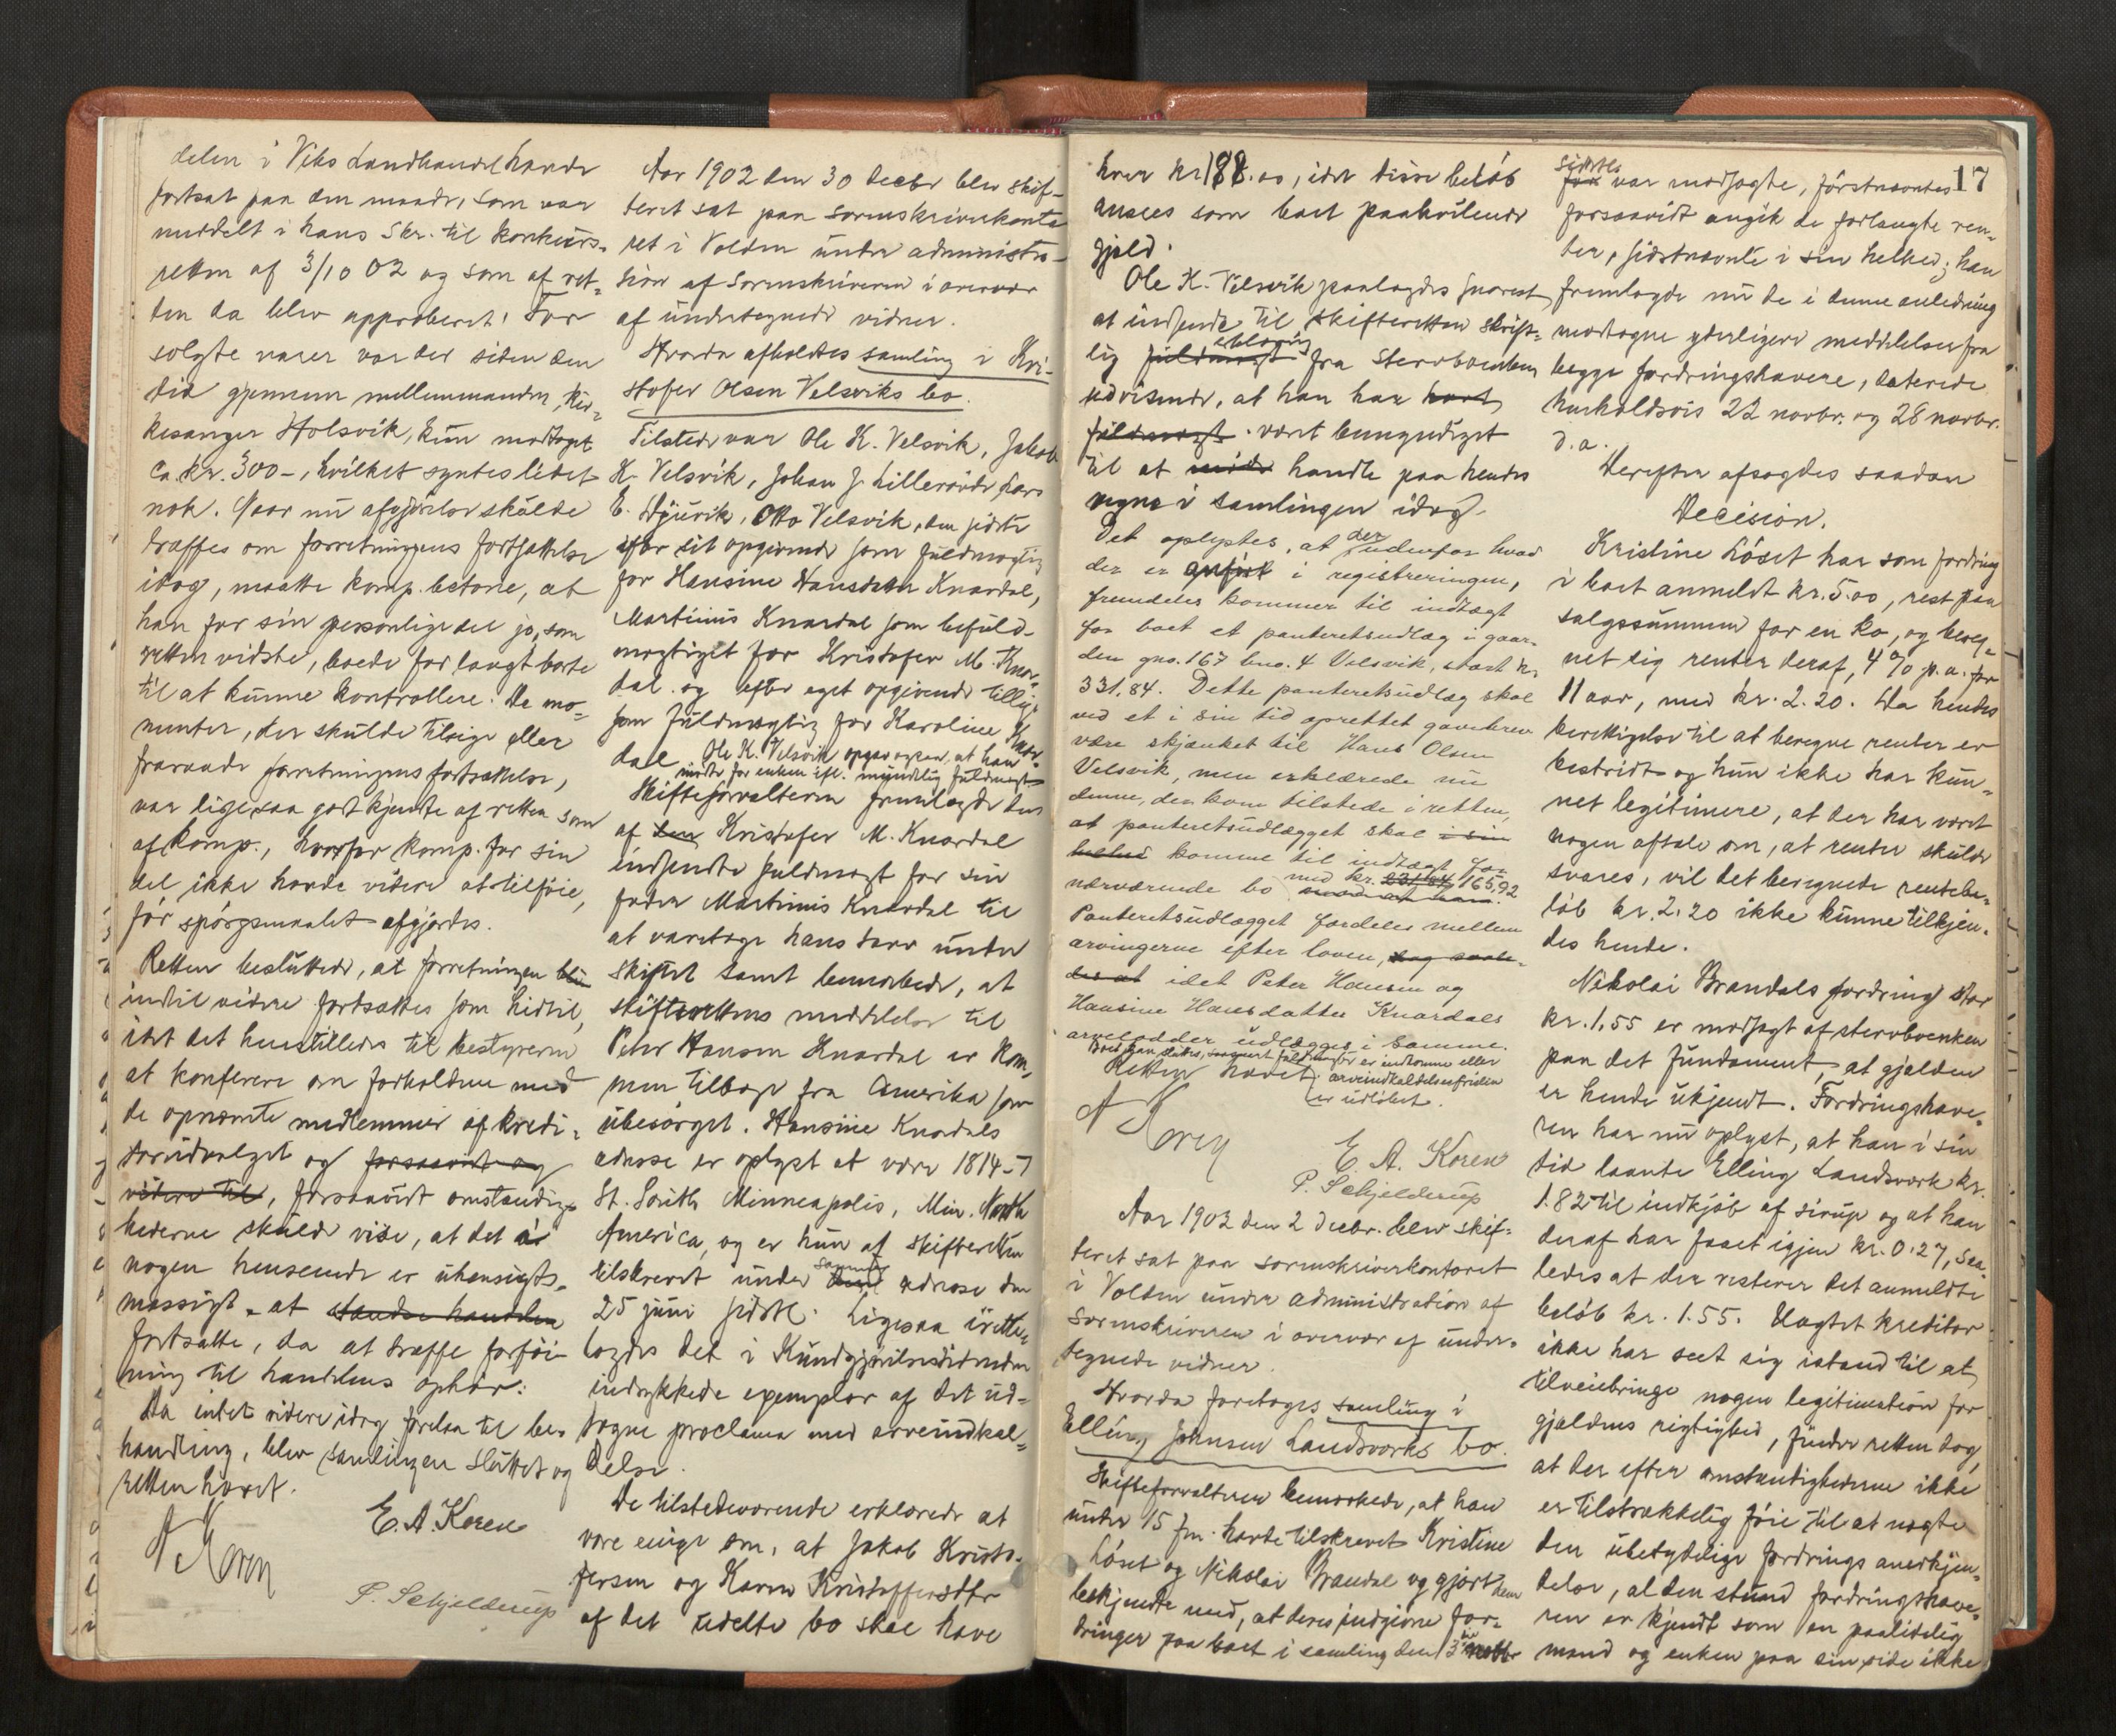 delen i Viks Landhandel havde
fortsat paa den maade, som var
meddelt i hans Skr. til konkurs-
retten af 3/10 02 og som af ret-
ten da blev approberet. For
solgte varer var der siden den
tid gjennem mellemmanden,
kesanger Holsvik, kun modtaget
ca. kr. 300-, hvilket syntes lidet
nok. Naar nu afgjørelse skulde
træffes om forretningens fortsættelse
idag, maatte komp. betone, at
han for sin personlige del jo, som
retten vidste, boede for langt borte
til at kunne kontrollere. De mo-
menter, der skulde tilsige eller
fraraade forretningens fortsættelse,
var ligesaa godt kjendte af retten som
af komp., hvorfor komp. for sin
del ikke havde videre at tilføie,
før spørgsmaalet afgjordes.
Retten besluttede, at forretningen blir
indtil videre fortsættes som hidtil,
idet det henstilledes til bestyreren
at konferere om forholdene med
de opnævnte medlemmer af kredi-
torudvalget og forsaavidt og
videre til, forsaavidt omstændig-
hederne skulde vise, at det i
nogen henseende er uhensigts-
mæssigt at standse handelen
fortsætte, da at træffe forføi-
ning til handelens ophør.
Da intet videre idag forelaa til be-
handling, blev samlingen sluttet og
retten hævet.
A Koren
E. A. Koren
P. Schjelderup
Aar 1902 den 30 decbr blev skif-
teret sat paa sorenskriverkonto-
ret i Volden under administra-
sion af sorenskriveren i overvær
af undertegnede vidner.
Hvorda afholdtes samling i Kri-
stofer Olsen Velsviks bo.
Tilstede var Ole K. Velsvik, Jakob
K. Velsvik, Johan J. Lillerøvde Lars
E. Djuvik, Otto Velsvik, den sidste
efter sit opgivende som fuldmægtig
for Hansine Hansdatter Knardal,
Martinus Knardal som befuld-
mægtiget for Kristofer M. Knar-
dal og efter eget opgivende tillige
som fuldmægtig for Karoline Knar-
dal. Ole K. Velsvik opgav ogsaa, at han
mødte for enken ifl. mundtlig fuldmagt
Skifteforvalteren fremlagde den
af den Kristofer M. Knardal
indsendte fuldmagt for sin
fader Martinus Knardal til
at varetage hans tarv under
skiftet samt bemærkede, at
skifterettens meddelelse til
Peter Hansen Knardal er kom-
men tilbage fra Amerika som
ubesørget. Hansine Knardals
adresse er oplyst at være 1814-7
St. South Minneapolis, Min. North
America, og er hun af skifteretten
tilskrevet under samme adresse den
25 juni sidstl. Ligesaa irette-
lagdes det i Kundgjørelsestidenden
indrykkede exemplar af det ud-
tagne proclama med arveindkal-
delse.
De tilstedeværende erklærede at
være enige om, at Jakob Kristo-
fersen og Karen Kristoffersdtr
af det udelte bo skal have
17
hver kr 188.00, idet disse beløb
ansees som boet paahvilende
gjæld.
Ole K. Velsvik paalagdes snarest
at indsende til skifteretten skrift-
erklæring
lig fuldmagt fra sterboenken
udvisende, at han har havt
fuldmagt været bemyndiget
til at møde handle paa hendes
vegne i samlingen idag.
Det oplystes, at der udenfor hvad
der er anført i registreringen,
fremdeles kommer til indtægt
for boet et panteretsudlæg i gaar-
den gno. 167 bno. 4 Velsvik, stort kr.
331,84. Dette panteretsudlæg skal
ved et i sin tid oprettet gavebrev
være skjænket til Hans Olsen
Velsvik, men erklærede nu
denne, der kom tilstede i retten,
at panteretsudlægget skal i sin
helhed komme til indtægt for
med kr. 331,84 165,92
nærværende bo mod at han.
Panteretsudlægget fordeles mellem
arvingerne efter loven, dog saale-
des at idet Peter Hansen og
Hansine Hansdatter Knardals
arvelodder udlægges i samme.
Boet kan sluttes, saasnart fuldmagter er indkomne eller
arveindkaldelsesfristen
er udløbet.
Retten hævet.
A Koren
E. A. Koren
P. Schjelderup
Aar 1902 den 2 decbr. blev skif-
teret sat paa sorenskriverkontoret
i Volden under administration af
sorenskriveren i overvær af under-
tegnede vidner.
Hvorda foretoges samling i
Elling Jensen Landsværks bo.
Skifteforvalteren bemærkede, at han
under 15 f.m. havde tilskrevet Kristine
Løset og Nikolai Brandal og gjort dem
bekjendte med, at deres indgivne for-
dringer paa boet i samling den 3 novbr
sidstl.
før var modsagte, førstnævntes
forsaavidt angik de forlangte ren-
ter, sidstnævnte i sin helhed; han
fremlagde nu de i denne anledning
modtagne yderligere meddelelser fra
begge fordringshavere, daterede
henholdsvis 22 novbr. og 28 novbr.
d.a.
Derefter afsagdes saadan
Decision.
Kristine Løset har som fordring
i boet anmeldt kr. 5.00, rest paa
salgssummen for en ko, og bereg-
net sig renter deraf, 4 % p.a. for
11 aar, med kr. 2.20. Da hendes
berettigelse til at beregne renter er
bestridt og hun ikke har kun-
net legitimere, at der har været
nogen aftale om, at renter skulde
svares, vil det beregnede rentebe-
løb kr. 2.20 ikke kunne tilkjen-
des hende.
Nikolai Brandals fordring stor
kr. 1,55 er modsagt af sterboenken
paa det fundament, at gjælden
er hende ukjendt. Fordringshave-
ren har nu oplyst, at han i sin
tid laante Elling Landsværk kr.
1.82 til indkjøb af sirup og at han
deraf har faaet igjen kr. 0.27, saa-
ledes at der resterer det anmeldte
beløb kr. 1.55. Uagtet kreditor
ikke har seet sig istand til at
tilveiebringe nogen legitimation for
gjældens rigtighed, finder retten dog,
at der efter omstændighederne ikke
er tilstrækkelig føie til at nægte
den ubetydelige fordrings anerkjen-
delse, al den stund fordringshave-
ren er kjendt som en paalidelig
mand og enken paa sin side ikke